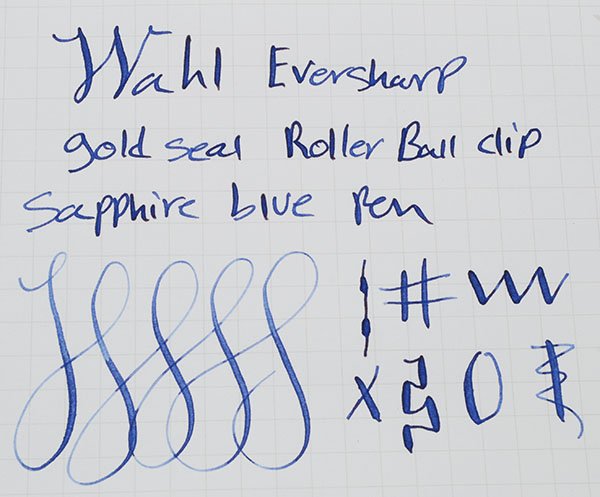 Wahl Eversharp
gold seal Roller Ball clip
Sapphire blue Pen